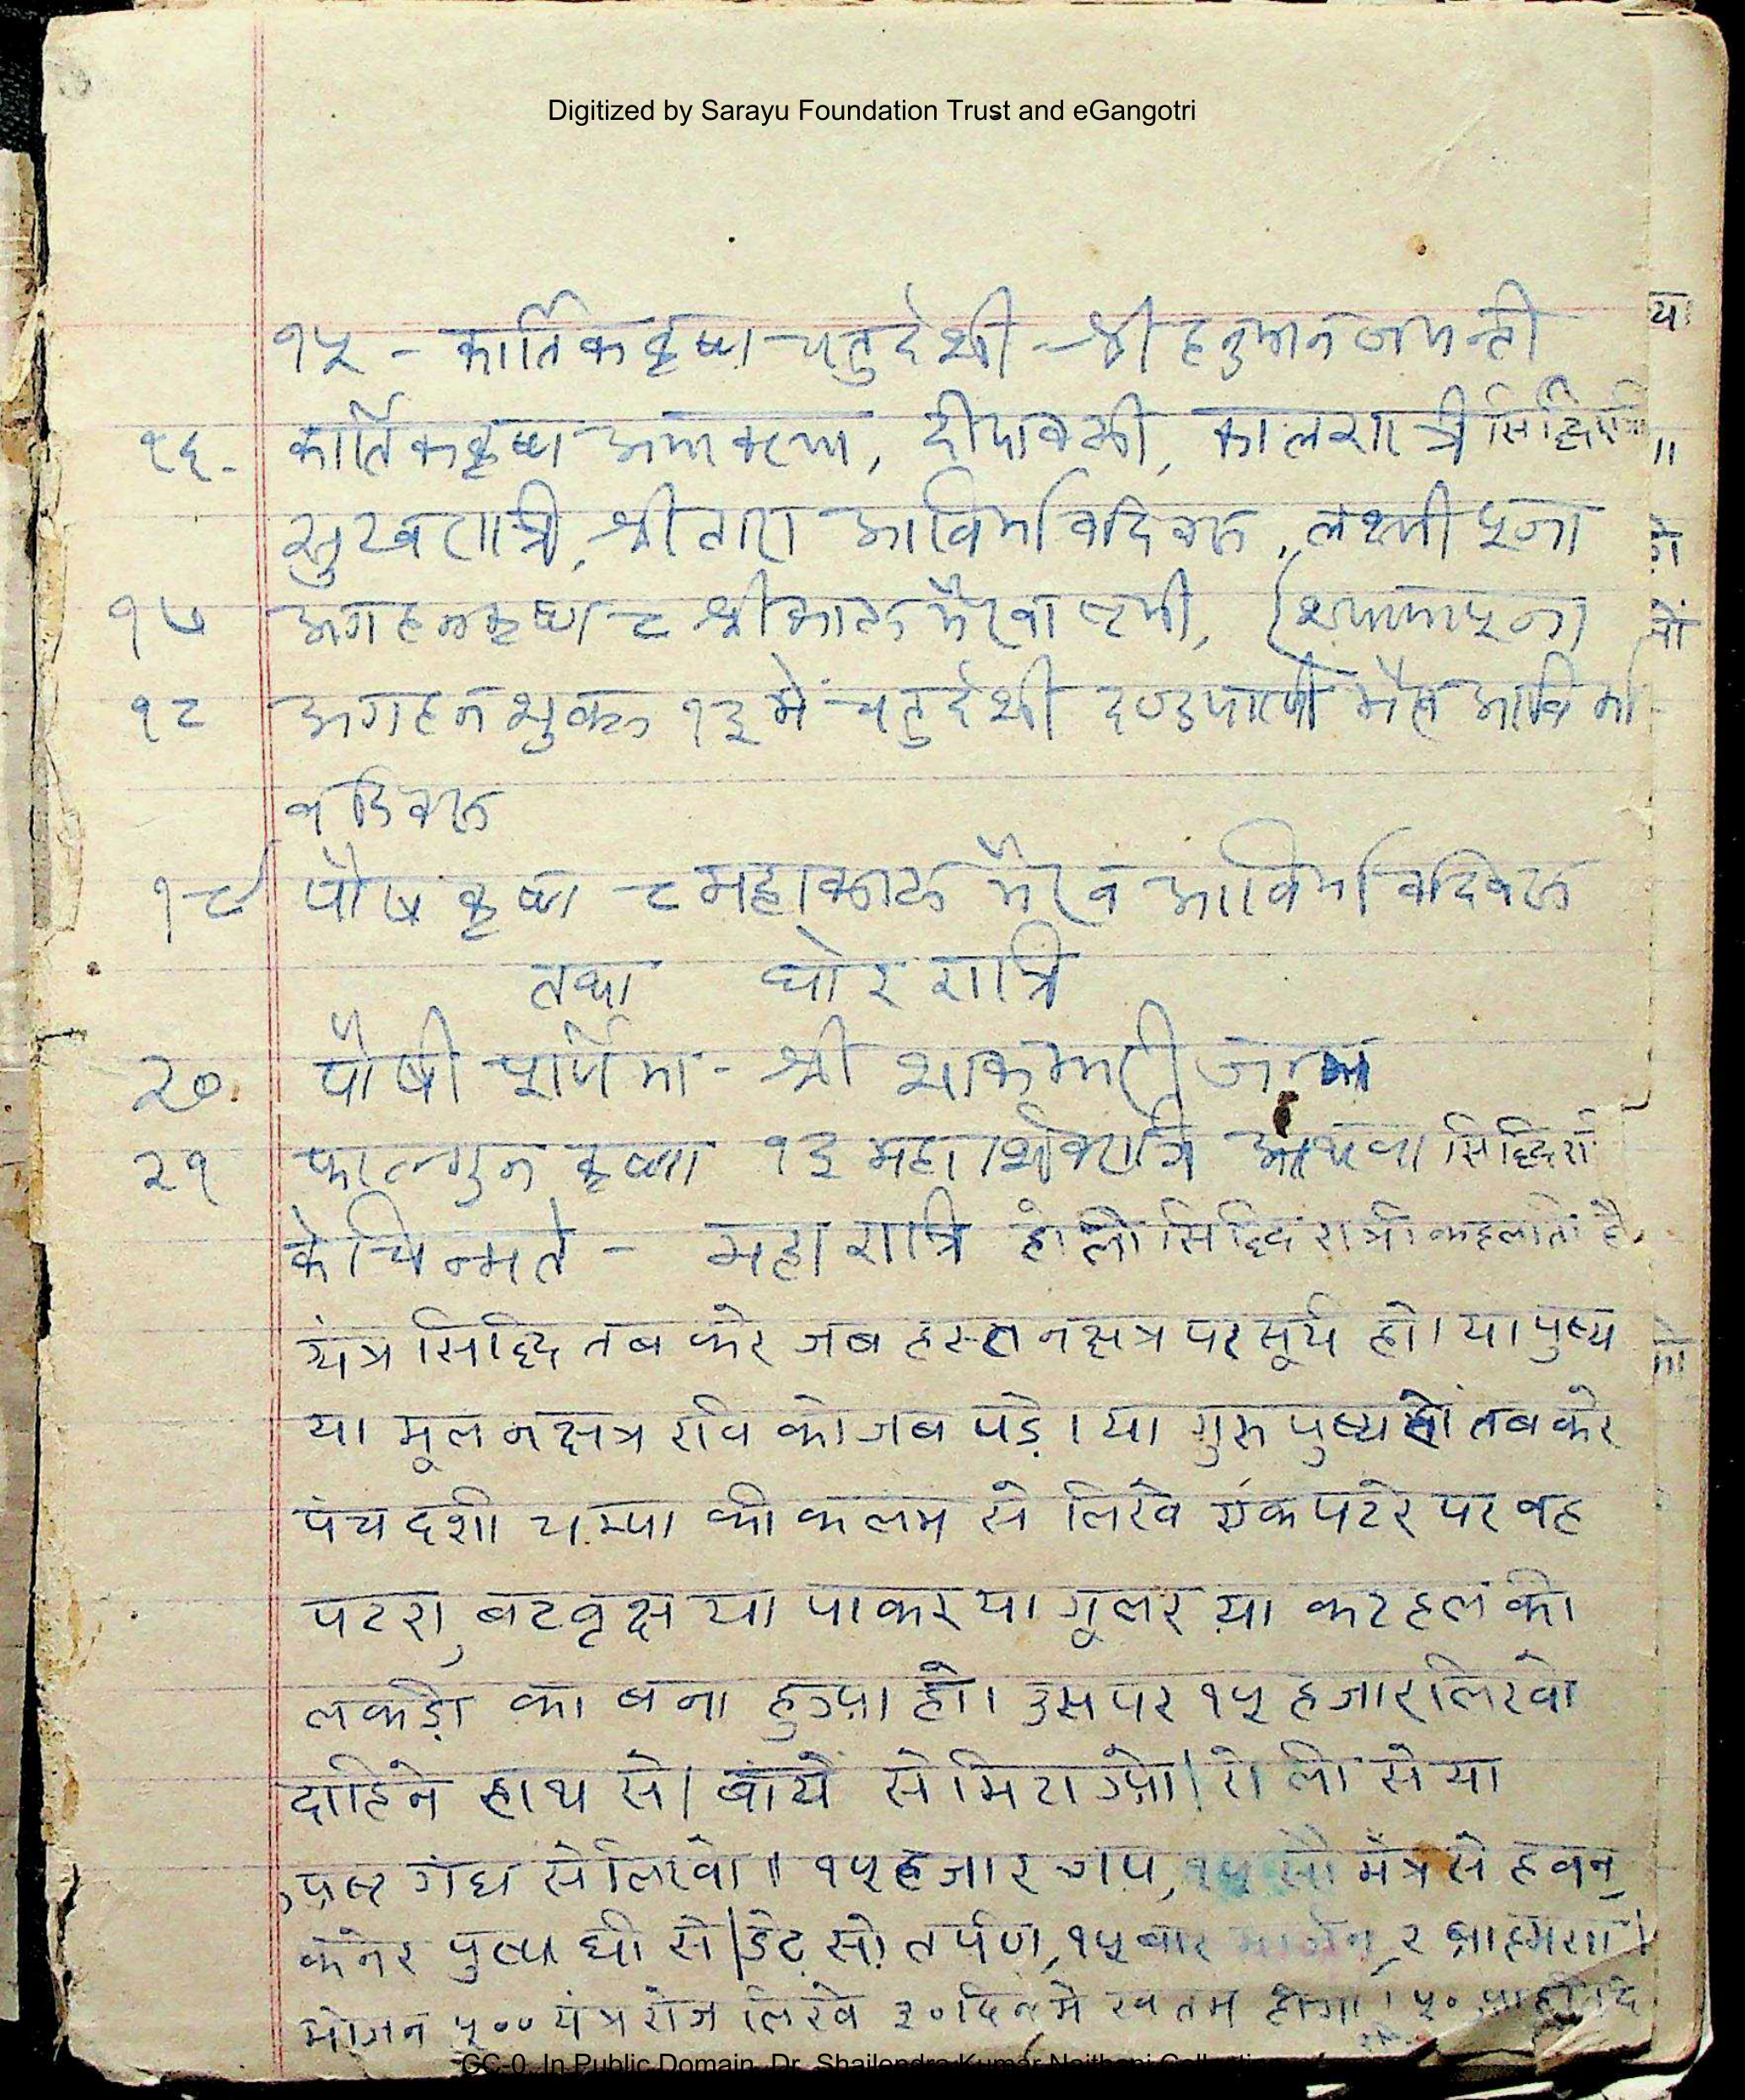 Digitized by Sarayu Foundation Trust and eGangotri
१५ - कार्तिक कृष्ण चतुर्दशी - श्री हनुमान जयन्ती
१६- कार्तिक कृष्ण अमावस्या, दीपावली, कालरात्री सिद्धिरात्रि
सुखरात्रि, श्री तारा आविर्भाव दिवस, लक्ष्मी पूजा
१७ अगहन कृष्ण ८ श्री काल भैरवाष्टमी, (श्यामापूजा)
१८ अगहन शुक्ल १३ में चतुर्दशी दण्डपाणी भैरव आविर्भा-
व दिवस
१९ पौष कृष्ण ८ महाकाल भैरव आविर्भाव दिवस
तथा घोर रात्रि
२०. पौषी पूर्णिमा - श्री शाकम्भरी जन्म
२१ फाल्गुन कृष्णा १३ महाशिवरात्रि अथवा सिद्धिरा
केचिन्मते - महारात्रि होली सिद्धि रात्री कहलाती है,
यंत्र सिद्धि तब करे जब हस्त नक्षत्र पर सूर्य हो। या पुष्य
या मूल नक्षत्र रवि को जब पड़े। या गुरु पुष्य हो तब करे
पंचदशी चम्पा की कलम से लिखे एक पटरे पर वह
पटरा, बटवृक्ष या पाकर या गूलर या कटहल की
लकड़ी का बना हुआ हो। उस पर १५ हजार लिखो
दाहिने हाथ से। बांये से मिटाओ। रोली से या
अष्ट गंध से लिखो॥ १५ हजार जप, १५ सौ मंत्र से हवन,
कनेर पुष्प घी से। डेढ़ सो तर्पण, १५ बार मार्जन, २ ब्राह्मण।
भोजन ५०० यंत्र रोज लिखे ३० दिन में खतम होगा। ५०
CC-0. In Public Domain. Dr. Shailendra Kumar Naithani Collection